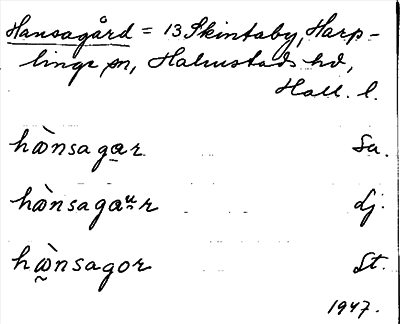 Hansagård = 13 Skintaby, Harp-
linge sn, Halmstads hd,
Hall. l.
hœ̀nsagar Sa.
hœ̀nsagaᵘr dj.
hœ̀nsagor St.
1947.